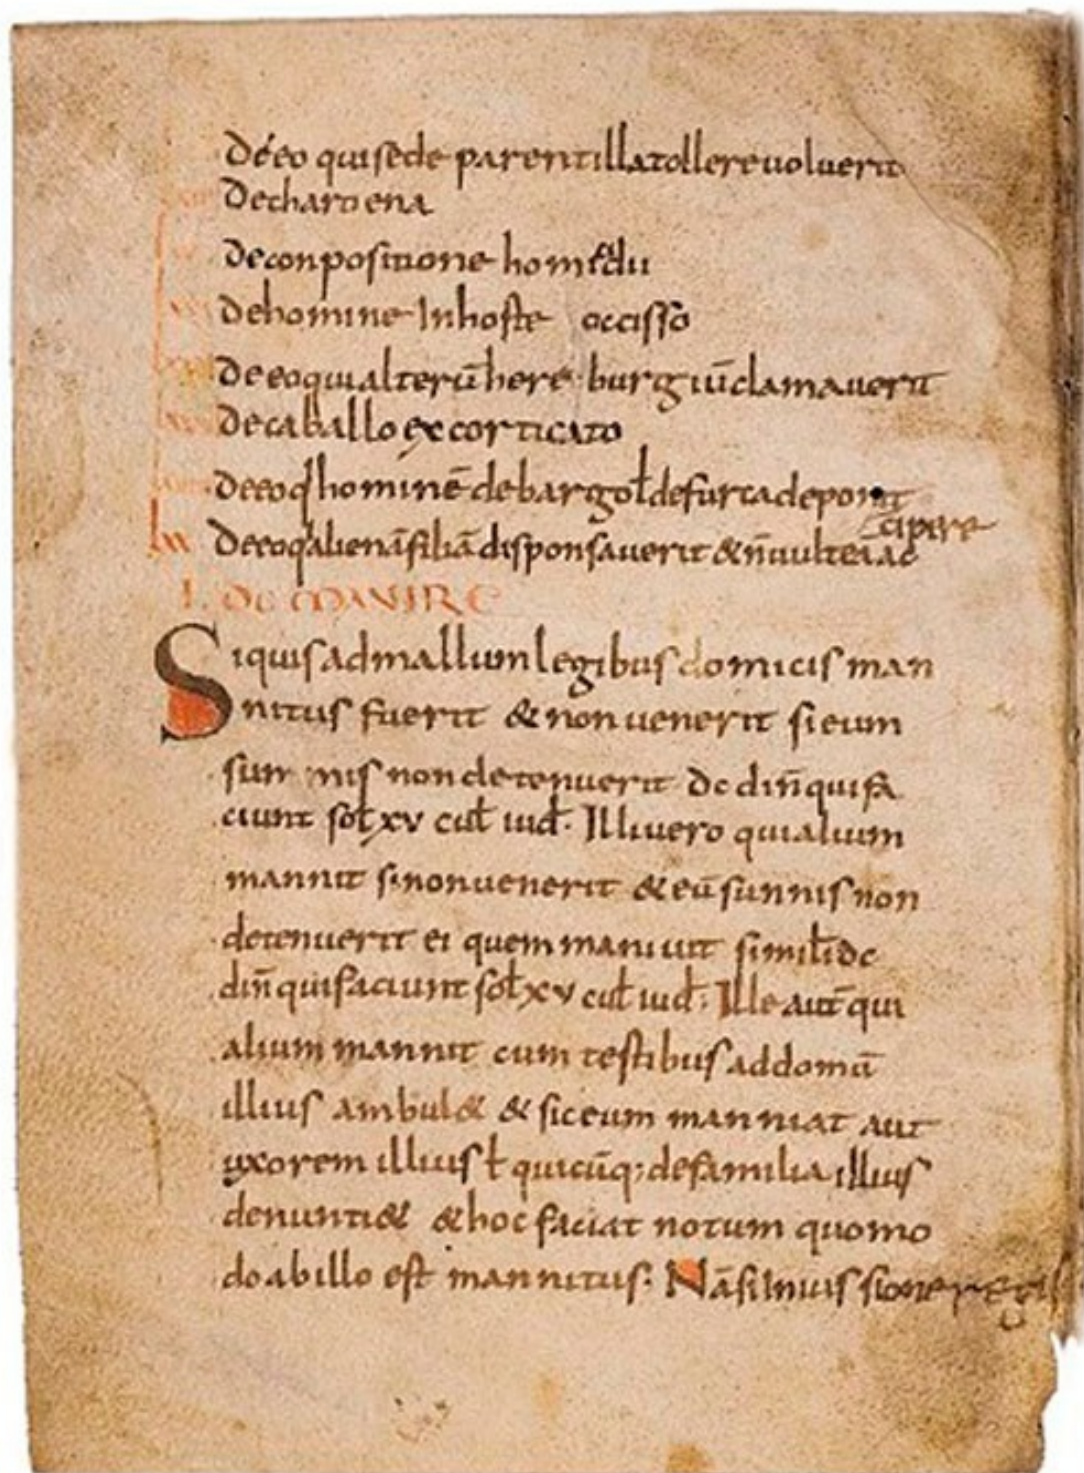 De eo qui se de parentilla tollere voluerit
De charoena
De conpositione homicdii
De homine In hoste occisso
De eo qui alterū here burgiū clamaverit
De caballo excorticato
De eo q hominē de bargo ł de furca deponit
De eo q alienā filiā disponsaverit & n̄ vult eā ac
cipere
I. De MANIRE
Si quis ad mallum legibus domicis man
nitus fuerit & non venerit si eum
sunnis non detenuerit Dc din̄ qui fa
ciunt sol xv cul iud. Ille vero qui alium
mannit si non venerit & eū sunnis non
detenuerit ei quem manivit simil Dc
din̄ qui faciunt sol xv cul iud. Ille aut̄ qui
alium mannit cum testibus ad domū
illius ambul& & sic eum manniat aut
uxorem illius ł quicūq; de familia illius
denunti& & hoc faciat notum quomo
do ab illo est mannitus. Nā si In iussione regis